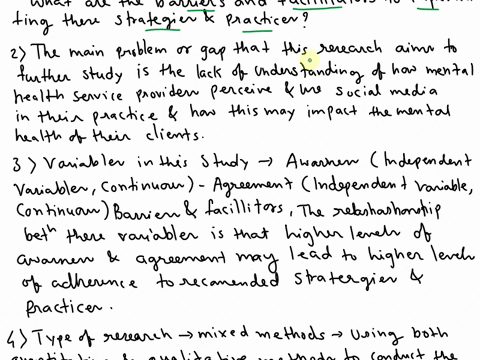 What are the barriers and facilitators to
ting there strategier & practicer?
2) The main problem or gap that this research aims to
further study is the lack of understanding of how mental
health service providers perceive & use social media
in their practice & how this may impact the mental
health of their clients.
3) Variabler in this study → Awarnen (Independent
Variabler, Continuous) - Agreement (Independent Variable,
Continuous) Barriers & facillitors, The relashashonship
betn there variabler is that higher levels of
awarnen & agreement may lead to higher levels
of adherence to recomended stratergier &
practicer.
4) Type of research → mixed methods → Using both
quantitative & qualitative methods to conduct the